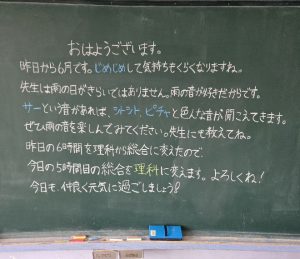 おはようございます。
昨日から6月です。じめじめして気持ちもくらくなりますね。
先生は雨の日がきらいではありません。雨の音が好きだからです。
サーという音があれば、シトシト、ピチャと色んな音が聞こえてきます。
ぜひ雨の音を楽しんでみてください。先生にも教えてね。
昨日の6時間を理科から総合に変えたので、
今日の5時間目の総合を理科に変えます。よろしくね!
今日も仲良く元気に過ごしましょう!